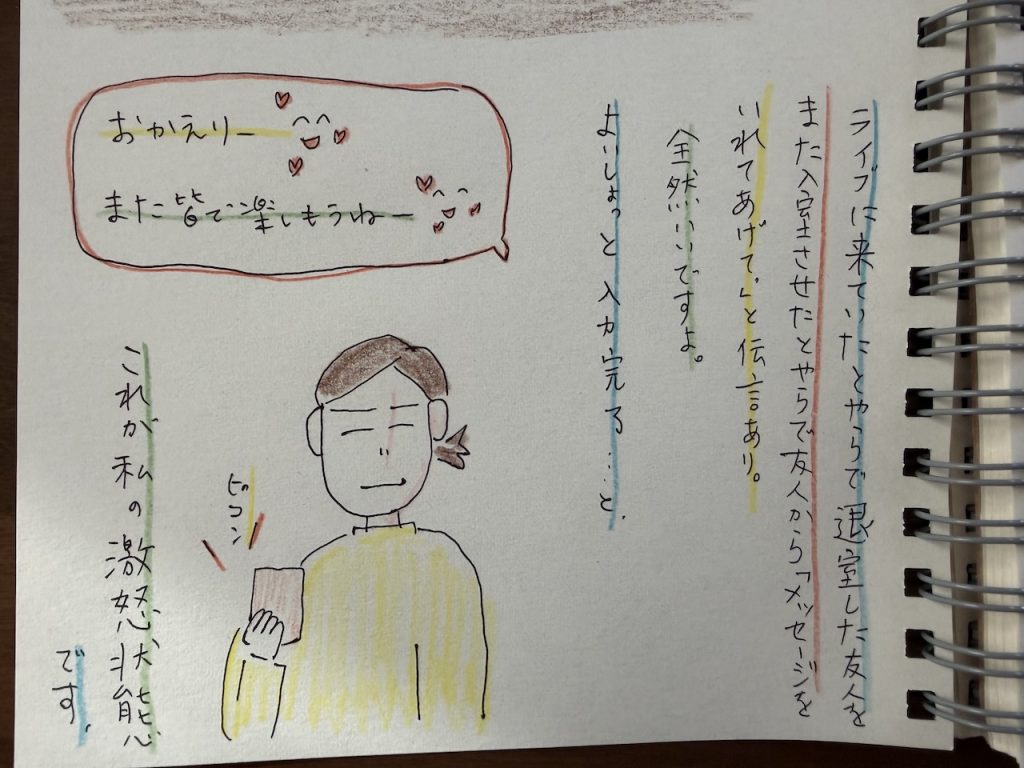 ライブに来ていたとやらで退室した友人を
また入室させたとやらで友人から「メッセージを
いれてあげて」と伝言あり。
全然いいですよ。
よいしょっと入力完了…と.
おかえりー
また皆で楽しもうねー
ピコン
これが私の激怒状態
です.